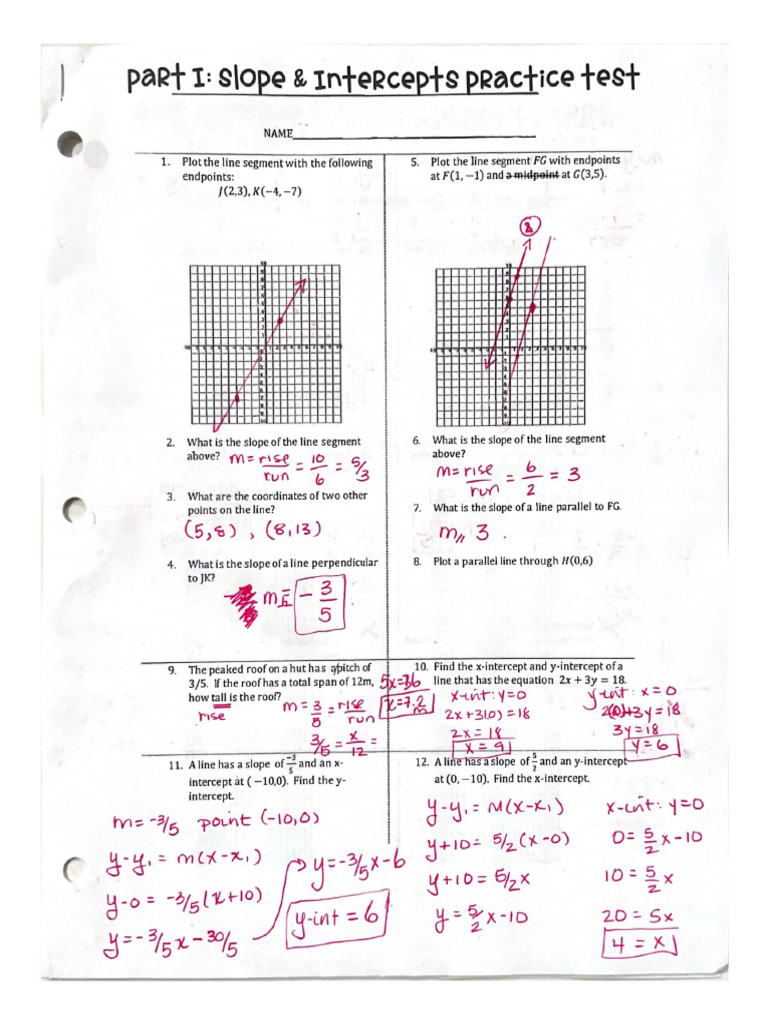 Part I: Slope & Intercepts Practice Test
NAME
1. Plot the line segment with the following
endpoints:
J(2,3), K(−4,−7)
2. What is the slope of the line segment
above? m = rise/run = 10/6 = 5/3
3. What are the coordinates of two other
points on the line?
(5,8) , (8,13)
4. What is the slope of a line perpendicular
to JK?
m⊥ = -3/5
5. Plot the line segment FG with endpoints
at F(1,−1) and a midpoint at G(3,5).
8
6. What is the slope of the line segment
above?
m = rise/run = 6/2 = 3
7. What is the slope of a line parallel to FG.
m// 3 .
8. Plot a parallel line through H(0,6)
9. The peaked roof on a hut has a pitch of
3/5. If the roof has a total span of 12m,
how tall is the roof?
rise
m = 3/5 = rise/run
3/5 = x/12 =
5x=36
x=7.2 m
10. Find the x-intercept and y-intercept of a
line that has the equation 2x + 3y = 18.
x-int: y=0
2x+3(0)=18
2x = 18
x = 9
y-int: x = 0
2(0)+3y=18
3y=18
y=6
11. A line has a slope of −3/5 and an x-
intercept at (−10,0). Find the y-
intercept.
m= -3/5 point (-10,0)
y-y₁ = m(x-x₁)
y-0 = -3/5(x+10)
y= -3/5x - 30/5
y=-3/5x-6
y-int = 6
12. A line has a slope of 5/2 and an y-intercept
at (0,−10). Find the x-intercept.
y-y₁ = m(x-x₁)
y+10 = 5/2(x-0)
y+10 = 5/2x
y = 5/2 x-10
x-int: y=0
0= 5/2 x-10
10 = 5/2 x
20 = 5x
4 = x